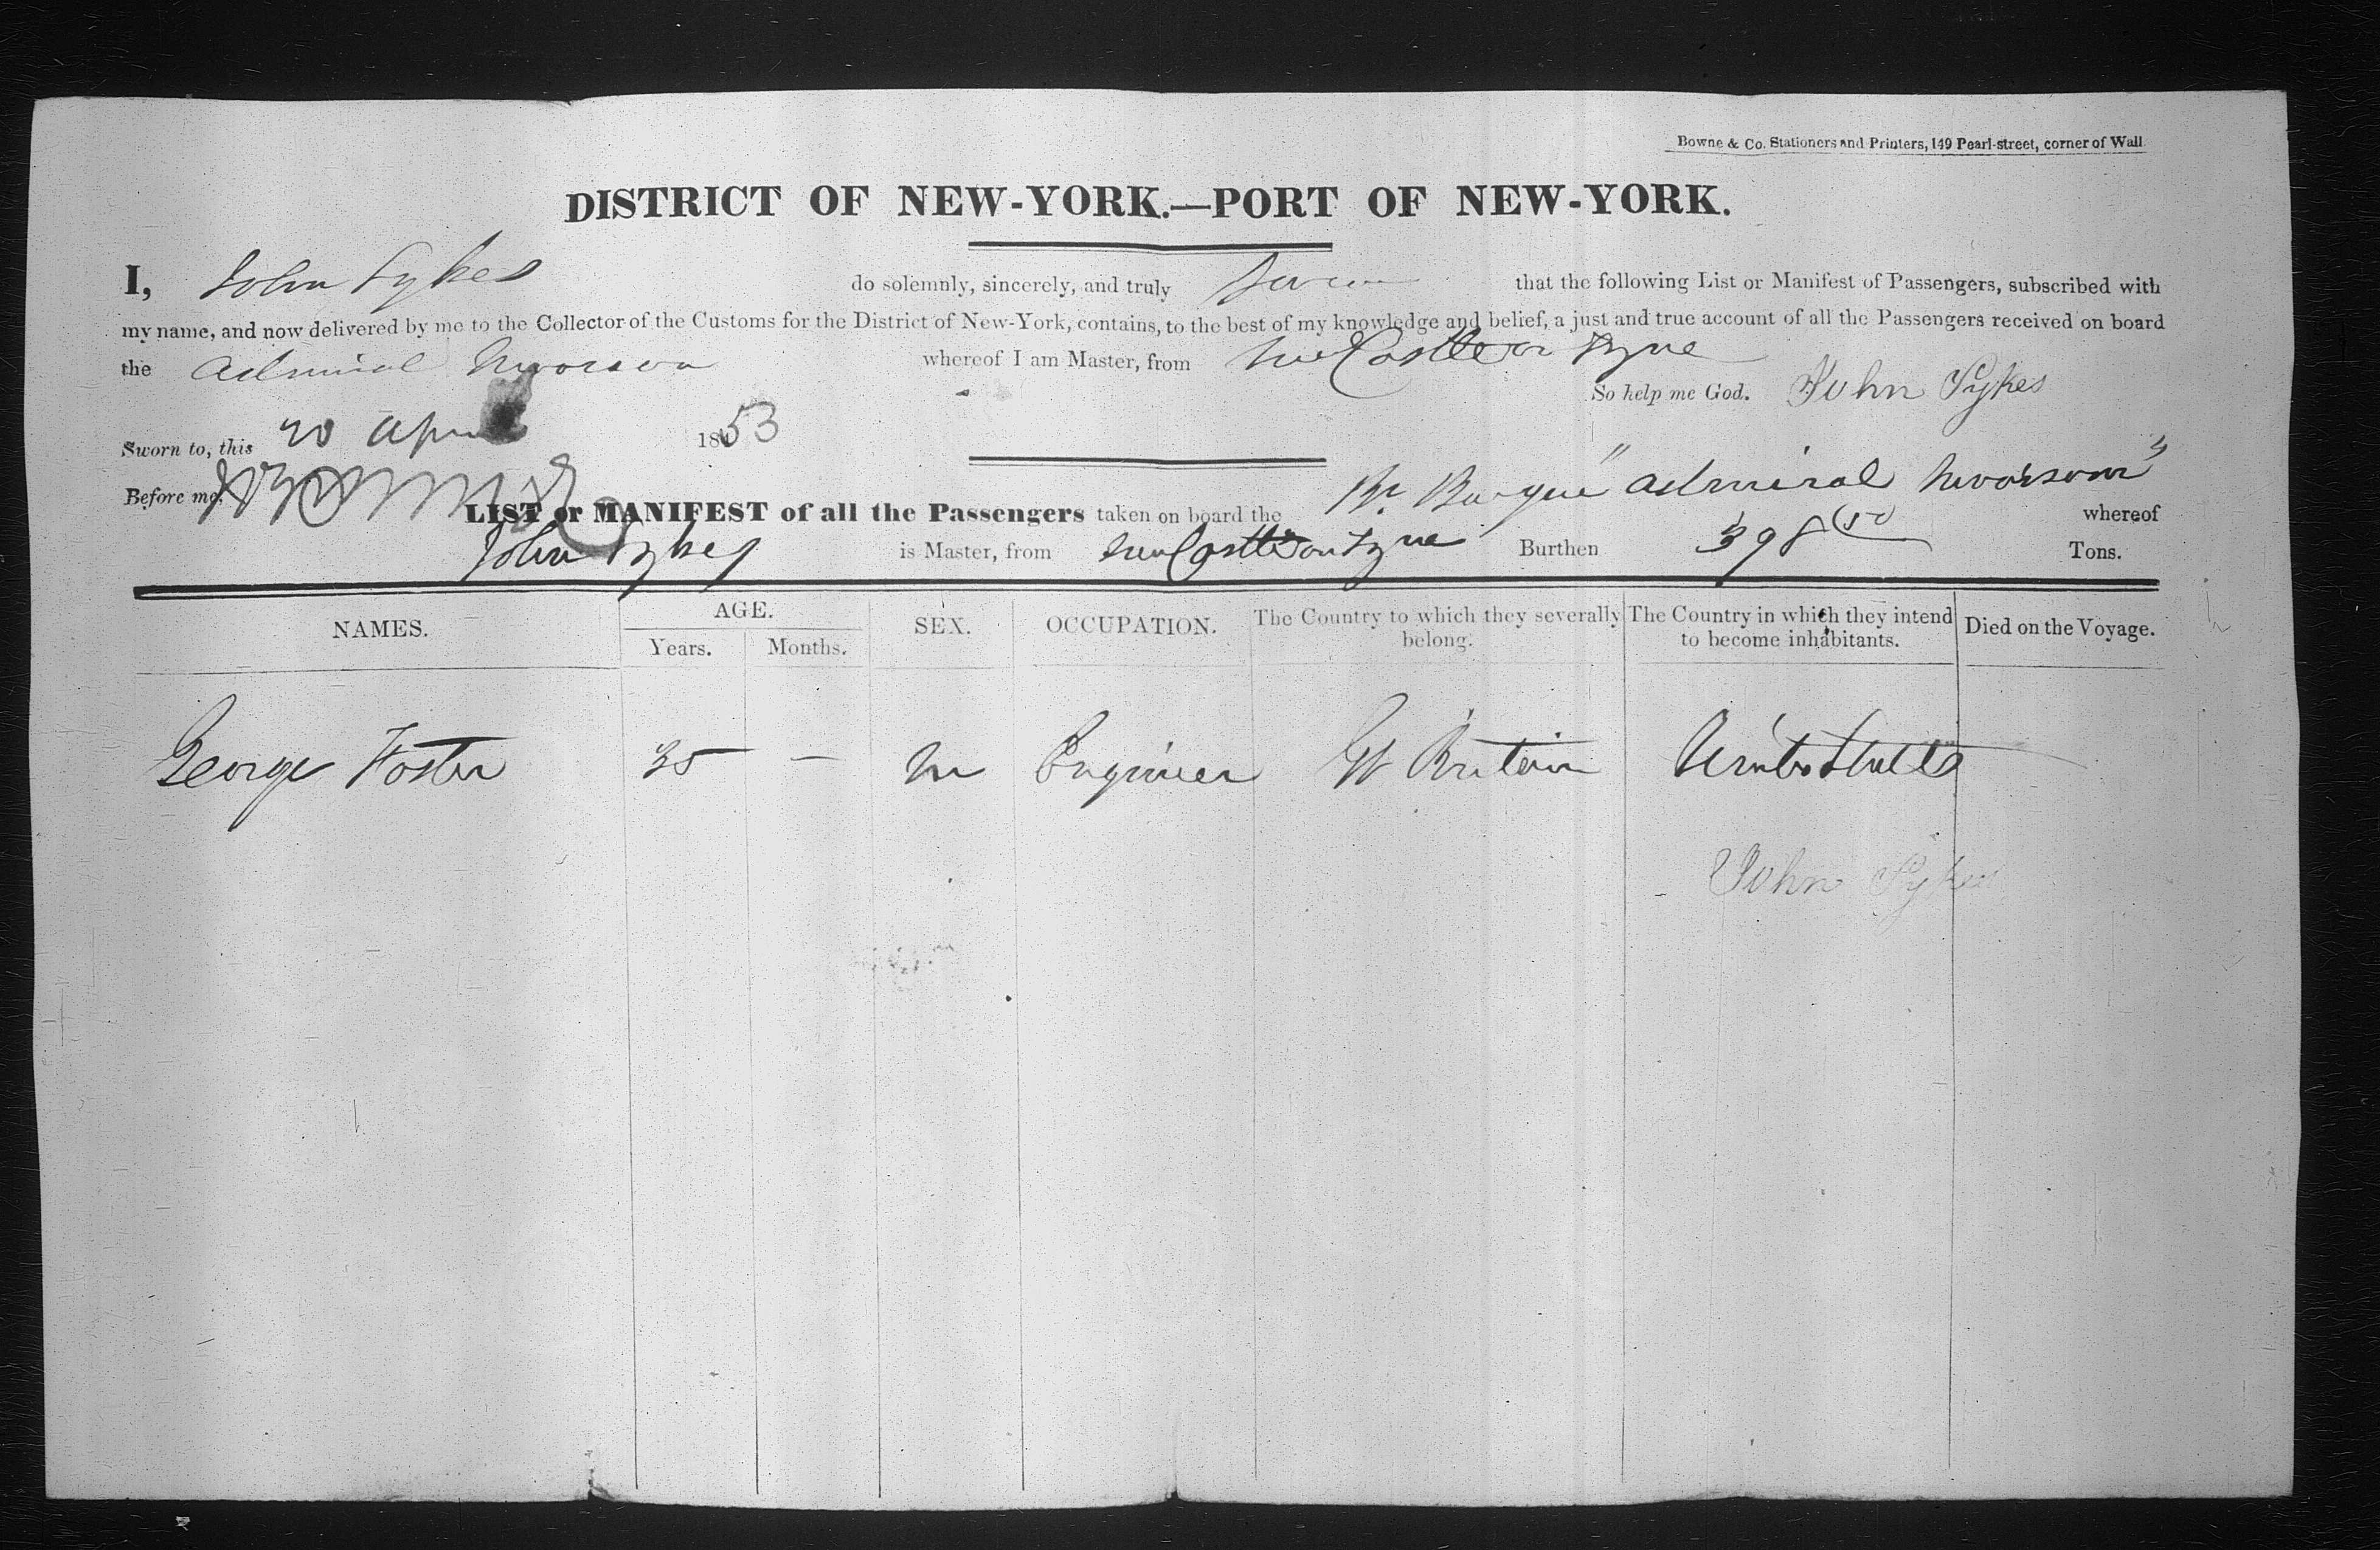 Bowne & Co. Stationers and Printers, 149 Pearl-street, corner of Wall.
DISTRICT OF NEW-YORK.—PORT OF NEW-YORK.
I, John Sykes do solemnly, sincerely, and truly Swear that the following List or Manifest of Passengers, subscribed with
my name, and now delivered by me to the Collector of the Customs for the District of New-York, contains, to the best of my knowledge and belief, a just and true account of all the Passengers received on board
the Admiral Moorsom whereof I am Master, from NewCastle on Tyne
So help me God. John Sykes
Sworn to, this 20 April 1853
Before me,
LIST or MANIFEST of all the Passengers taken on board the Br. Barque "Admiral Moorsom" whereof
John Sykes is Master, from NewCastle on Tyne Burthen 398 Tons.
NAMES. AGE. SEX. OCCUPATION. The Country to which they severally belong. The Country in which they intend to become inhabitants. Died on the Voyage.
Years. Months.
George Foster 35 — M Engineer Gt Britain United States
John Sykes